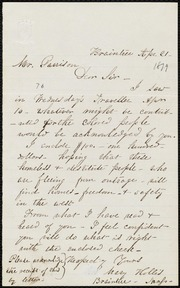 Braintree Apr. 21.
1879
Mr. Garrison
Dear Sir —
I saw
in Wednesday's Traveller Apr.
16. whatever might be contrib-
uted for the colored people
would be acknowledged by you.
I enclose five - one hundred
dollars hoping that these
homeless & destitute people - who
are fleeing from outrage will
find homes - freedom & safety
in the west
From what I have read &
heard of you - I feel confident
you will do what is right
with the enclosed check.
Please acknowledge Respectfully
the receipt of this Yours
by letter. Mary
Braintree - Mass -